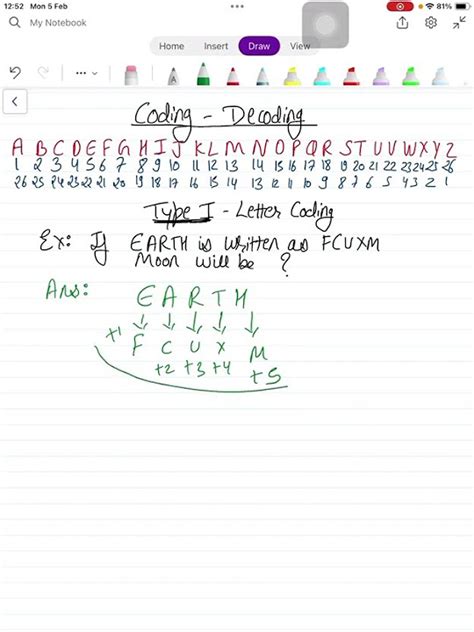 12:52 Mon 5 Feb 81%
My Notebook
Home Insert Draw View
Coding - Decoding
A B C D E F G H I J K L M N O P Q R S T U V W X Y Z
1 2 3 4 5 6 7 8 9 10 11 12 13 14 15 16 17 18 19 20 21 22 23 24 25 26
26 25 24 23 22 21 20 19 18 17 16 15 14 13 12 11 10 9 8 7 6 5 4 3 2 1
Type I - Letter Coding
Ex: If EARTH is written as FCUXM
Moon will be ?
Ans: E A R T H
+1 F C U X M
+2 +3 +4 +5